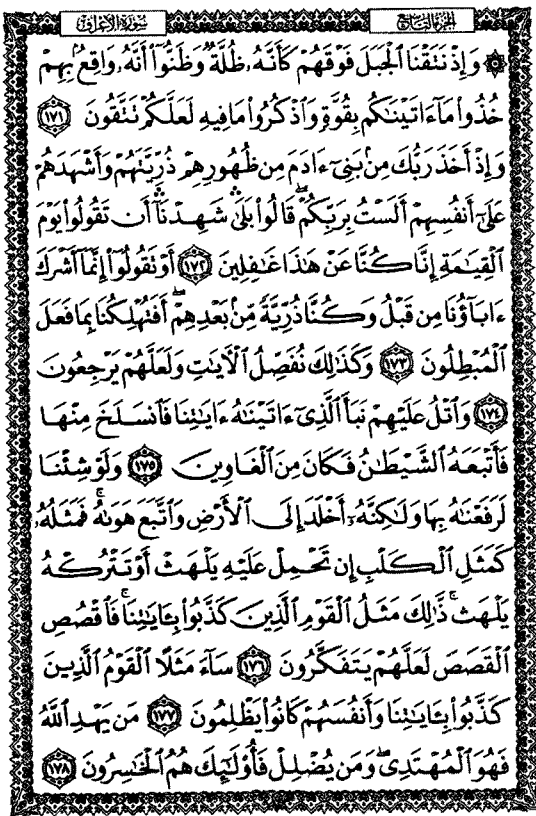 الجزء التاسع
سورة الأعراف
۞ وَإِذْ نَتَقْنَا ٱلْجَبَلَ فَوْقَهُمْ كَأَنَّهُۥ ظُلَّةٌ وَظَنُّوٓا۟ أَنَّهُۥ وَاقِعٌۢ بِهِمْ
خُذُوا۟ مَآ ءَاتَيْنَـٰكُم بِقُوَّةٍ وَٱذْكُرُوا۟ مَا فِيهِ لَعَلَّكُمْ تَتَّقُونَ ١٧١
وَإِذْ أَخَذَ رَبُّكَ مِنۢ بَنِىٓ ءَادَمَ مِن ظُهُورِهِمْ ذُرِّيَّتَهُمْ وَأَشْهَدَهُمْ
عَلَىٰٓ أَنفُسِهِمْ أَلَسْتُ بِرَبِّكُمْ ۖ قَالُوا۟ بَلَىٰ ۛ شَهِدْنَآ ۛ أَن تَقُولُوا۟ يَوْمَ
ٱلْقِيَـٰمَةِ إِنَّا كُنَّا عَنْ هَـٰذَا غَـٰفِلِينَ ١٧٢ أَوْ تَقُولُوٓا۟ إِنَّمَآ أَشْرَكَ
ءَابَآؤُنَا مِن قَبْلُ وَكُنَّا ذُرِّيَّةً مِّنۢ بَعْدِهِمْ ۖ أَفَتُهْلِكُنَا بِمَا فَعَلَ
ٱلْمُبْطِلُونَ ١٧٣ وَكَذَٰلِكَ نُفَصِّلُ ٱلْـَٔايَـٰتِ وَلَعَلَّهُمْ يَرْجِعُونَ
١٧٤ وَٱتْلُ عَلَيْهِمْ نَبَأَ ٱلَّذِىٓ ءَاتَيْنَـٰهُ ءَايَـٰتِنَا فَٱنسَلَخَ مِنْهَا
فَأَتْبَعَهُ ٱلشَّيْطَـٰنُ فَكَانَ مِنَ ٱلْغَاوِينَ ١٧٥ وَلَوْ شِئْنَا
لَرَفَعْنَـٰهُ بِهَا وَلَـٰكِنَّهُۥٓ أَخْلَدَ إِلَى ٱلْأَرْضِ وَٱتَّبَعَ هَوَىٰهُ ۚ فَمَثَلُهُۥ
كَمَثَلِ ٱلْكَلْبِ إِن تَحْمِلْ عَلَيْهِ يَلْهَثْ أَوْ تَتْرُكْهُ
يَلْهَث ۚ ذَّٰلِكَ مَثَلُ ٱلْقَوْمِ ٱلَّذِينَ كَذَّبُوا۟ بِـَٔايَـٰتِنَا ۚ فَٱقْصُصِ
ٱلْقَصَصَ لَعَلَّهُمْ يَتَفَكَّرُونَ ١٧٦ سَآءَ مَثَلًا ٱلْقَوْمُ ٱلَّذِينَ
كَذَّبُوا۟ بِـَٔايَـٰتِنَا وَأَنفُسَهُمْ كَانُوا۟ يَظْلِمُونَ ١٧٧ مَن يَهْدِ ٱللَّهُ
فَهُوَ ٱلْمُهْتَدِى ۖ وَمَن يُضْلِلْ فَأُو۟لَـٰٓئِكَ هُمُ ٱلْخَـٰسِرُونَ ١٧٨